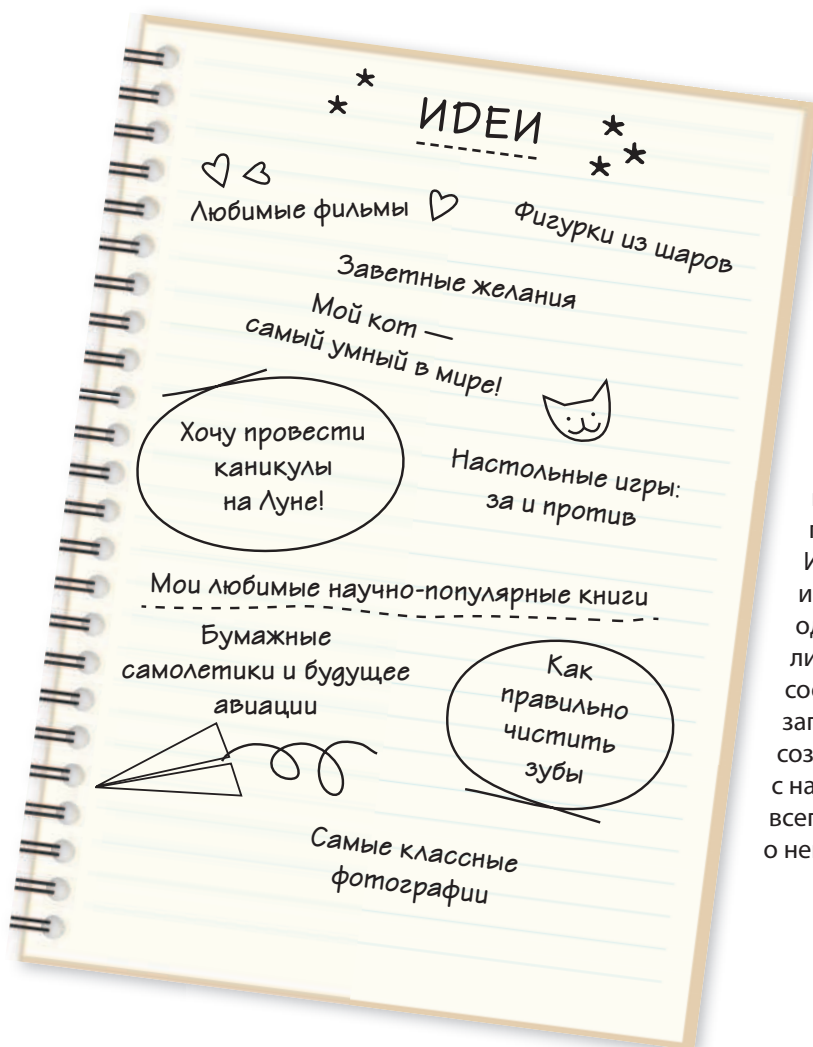 ИДЕИ
Любимые фильмы
Фигурки из шаров
Заветные желания
Мой кот —
самый умный в мире!
Хочу провести
каникулы
на Луне!
Настольные игры:
за и против
Мои любимые научно-популярные книги
Бумажные
самолетики и будущее
авиации
Как
правильно
чистить
зубы
Самые классные
фотографии